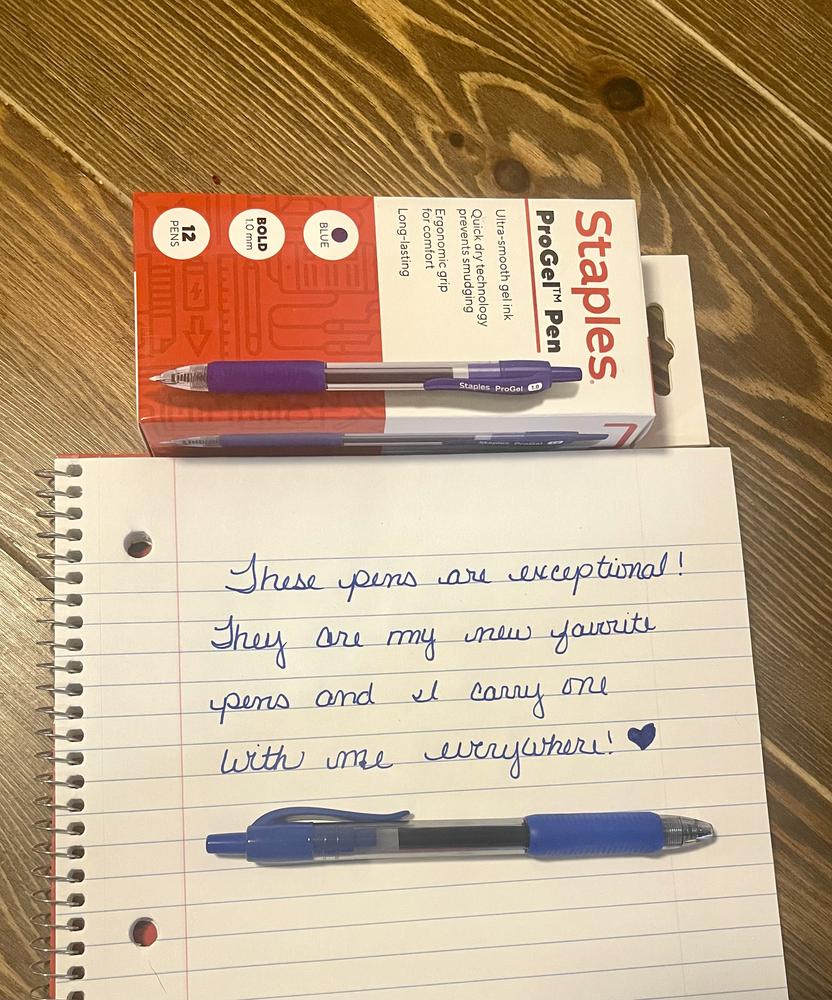 Staples
ProGel™ Pen
Ultra-smooth gel ink
Quick dry technology
prevents smudging
Ergonomic grip
for comfort
Long-lasting
BLUE
BOLD
1.0 mm
12
PENS
Staples ProGel 1.0
Staples ProGel
These pens are exceptional!
They are my new favorite
pens and I carry one
with me everywhere! ♥